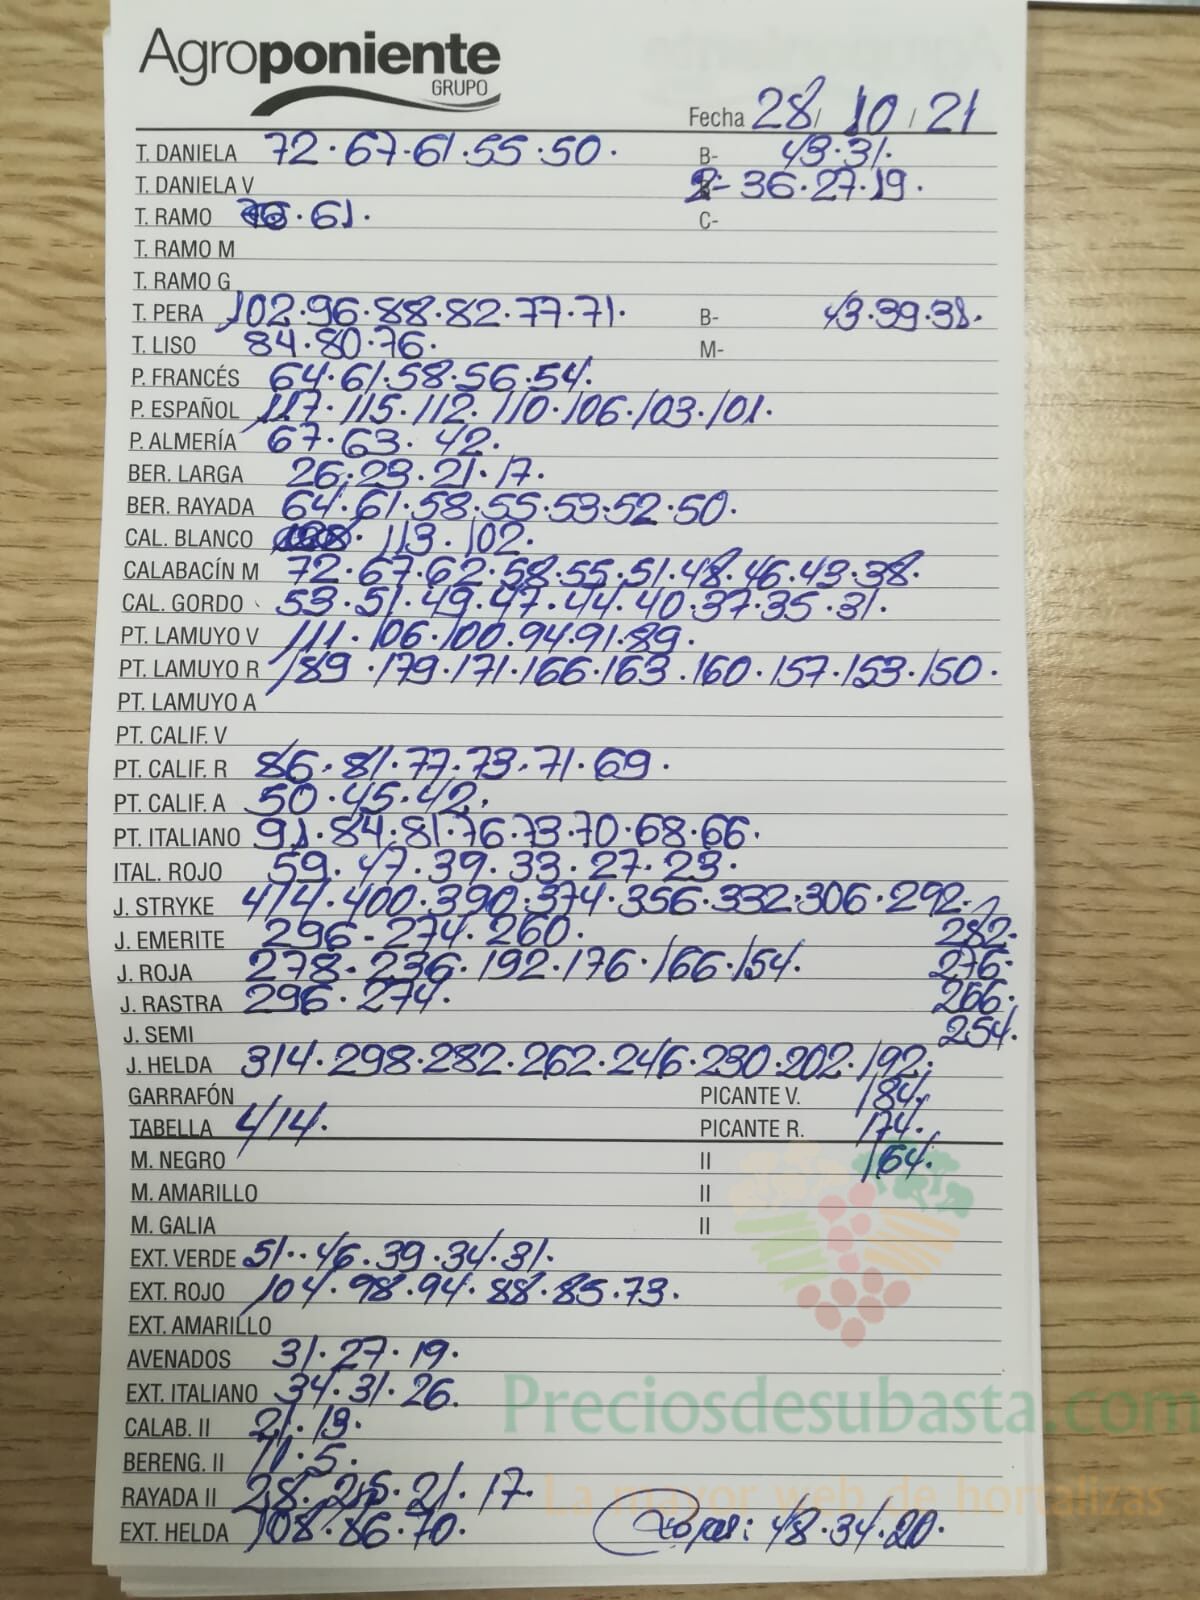 Agroponiente
GRUPO
Fecha 28/10/21
T. DANIELA 72.67.61.55.50. B- 43.31.
T. DANIELA V 2- 36.27.19.
T. RAMO .61. C-
T. RAMO M
T. RAMO G
T. PERA 102.96.88.82.77.71. B- 43.39.38.
T. LISO 84.80.76. M-
P. FRANCÉS 64.61.58.56.54.
P. ESPAÑOL 117.115.112.110.106.103.101.
P. ALMERÍA 67.63.42.
BER. LARGA 26.23.21.17.
BER. RAYADA 64.61.58.55.53.52.50.
CAL. BLANCO .113.102.
CALABACÍN M 72.67.62.58.55.51.48.46.43.38.
CAL. GORDO 53.51.49.47.44.40.37.35.31.
PT. LAMUYO V 111.106.100.94.91.89.
PT. LAMUYO R 189.179.171.166.163.160.157.153.150.
PT. LAMUYO A
PT. CALIF. V
PT. CALIF. R 86.81.77.73.71.69.
PT. CALIF. A 50.45.42.
PT. ITALIANO 91.84.81.76.73.70.68.66.
ITAL. ROJO 59.47.39.33.27.23.
J. STRYKE 414.400.390.374.356.332.306.292.
J. EMERITE 296-274.260. 282.
J. ROJA 278-236.192.176.166.154. 276.
J. RASTRA 296.274. 266.
J. SEMI 254.
J. HELDA 314.298.282.262.246.230.202.192.
GARRAFÓN PICANTE V. 184.
TABELLA 414. PICANTE R. 174.
M. NEGRO II 164.
M. AMARILLO II
M. GALIA II
EXT. VERDE 51..46.39.34.31.
EXT. ROJO 104.98.94.88.85.73.
EXT. AMARILLO
AVENADOS 31.27.19.
EXT. ITALIANO 34.31.26.
Preciosdesubasta.com
CALAB. II 21.13.
BERENG. II 11.5.
RAYADA II 28.25.21.17.
La mayor web de hortalizas
EXT. HELDA 108.86.70. : 48.34.20.